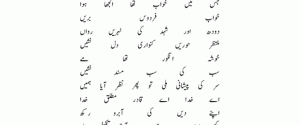 جس میں خواب تھا الجھا ہوا
خواب فردوس بریں
دودھ اور شہد کی نہریں رواں
منتظر حوریں کنواری دل نشیں
خوشہ انگور تھا مے
سب کی سب مسند نشیں
سر کی پیشانی ملی تو پھر نظر آیا ہمیں
اے خدا اے قادر مطلق خدا
اپنے دیں کی آبرو رکھ